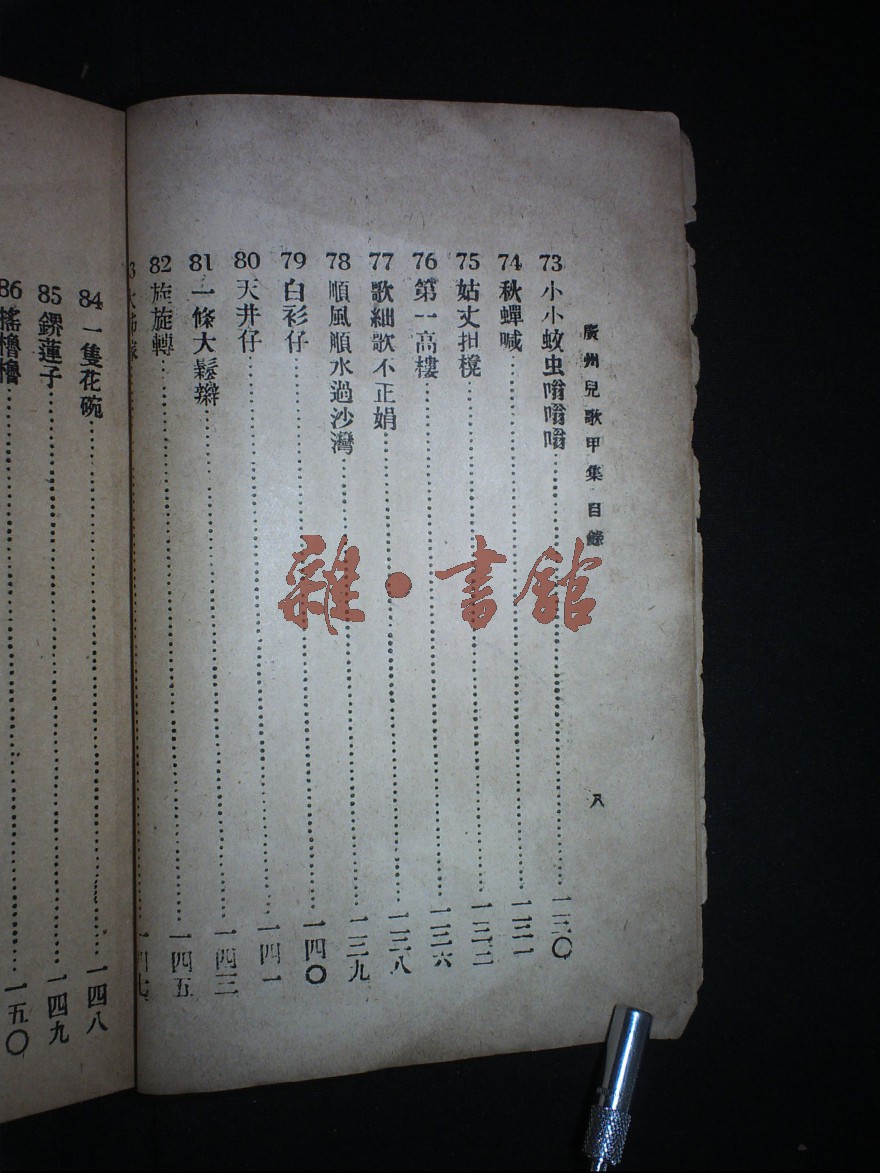 廣州兒歌甲集 目錄
八
73 小小蚊虫嗡嗡嗡……一三〇
74 秋蟬喊……一三一
75 姑丈担櫈……一三二
76 第一高樓……一三六
77 歌細歌不正娟……一三八
78 順風順水過沙灣……一三九
79 白衫仔……一四〇
80 天井仔……一四一
81 一條大鬆辮……一四三
82 旋旋轉……一四五
3 大……一四七
84 一隻花碗……一四八
85 鏍蓮子……一四九
86 搖櫓櫓……一五〇
雜·書館